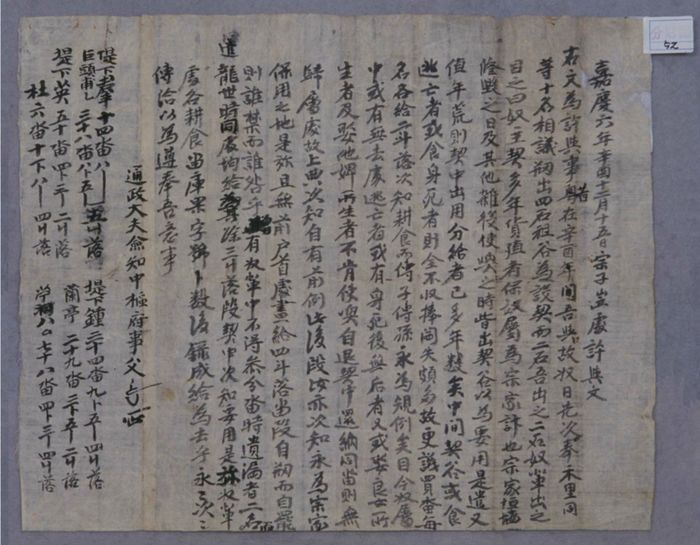 52
嘉慶六年辛酉十二月十五日宗子處許與文
右文為許與事段昔在辛酉年間吾與故奴日先次奉禾里同
等十名相議剏出四石租谷為設契而二石吾出之二石奴輩出之
目之曰奴主契多年貨殖者保汝屬為宗家計也宗家垣墻
修繕之日及其他雜役使喚之時皆出契谷以為要用是遣又
值年荒則契中出用分給者已多年數矣中間契谷或食
逃亡者或食身死者則全不收捧闕失頗多故更議買畓每
名各給二斗落次知耕食而傳子傳孫永為規例矣目今奴屬
中或有無去處逃亡者或有身死後無后者又或娶良女所
生者及娶他婢所生者不肯使喚自退契中還納同畓則無
歸屬處故上典次知自有前例此後段此亦次知永為宗家
保用之地是旀且無前戶首處畫給四斗落畓段自剏而自罷
則誰禁而誰咎乎有奴輩中不得參分畓時遺漏者二名
遣龍世時同處均給除三斗落段契中次知要用是旀奴輩
處各耕食畓庫果字號卜數後錄成給為去乎永永次次
傳給以為遵奉吾意事
通政大夫僉知中樞府事父
堤下 十四畓八 堤下鍾二十四畓九卜五 四斗落
三十八畓八卜五 五斗落 蘭亭二十九畓三卜五 二斗落
堤下英五十畓四卜三 二斗落
杜六畓十卜八 四斗落 七十八畓四卜三 四斗落